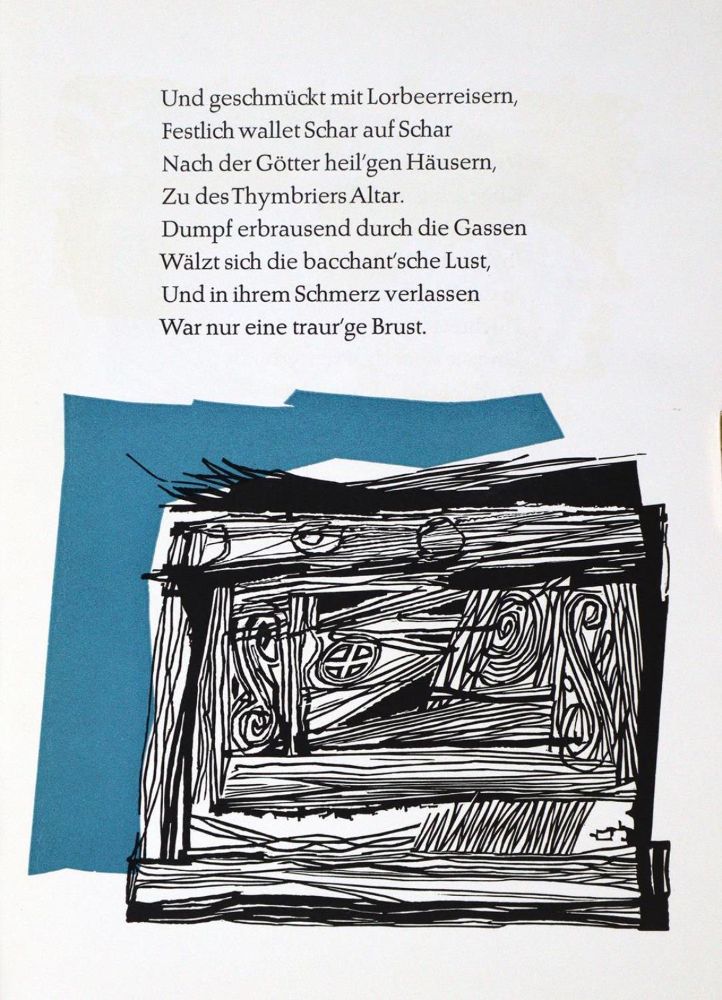 Und geschmückt mit Lorbeerreisern,
Festlich wallet Schar auf Schar
Nach der Götter heil'gen Häusern,
Zu des Thymbriers Altar.
Dumpf erbrausend durch die Gassen
Wälzt sich die bacchant'sche Lust,
Und in ihrem Schmerz verlassen
War nur eine traur'ge Brust.